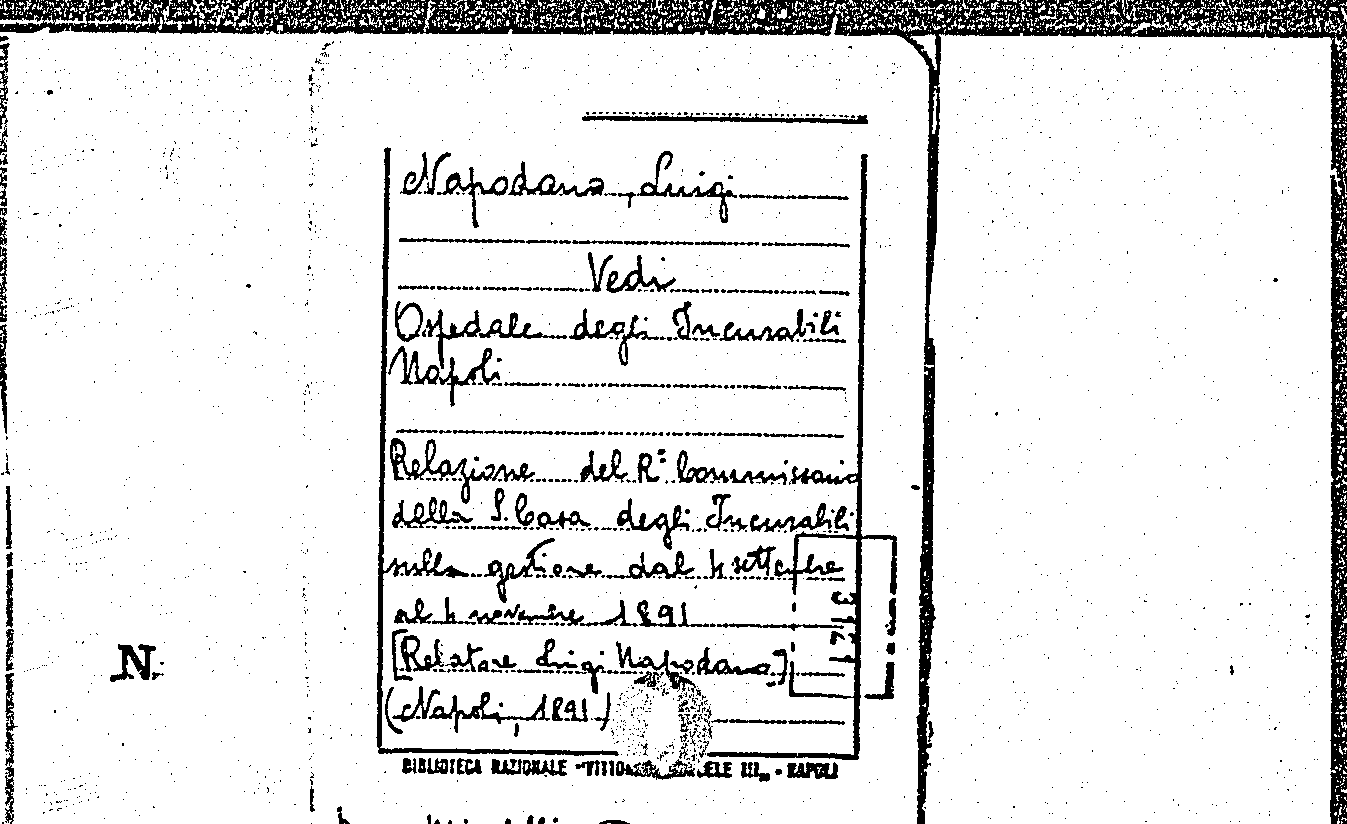 Napodano, Luigi
Vedi
Ospedale degli Incurabili
Napoli
Relazione del R.° Commissario
della S. Casa degli Incurabili
sulla gestione dal 4 settembre
al 4 novembre 1891
[Relatore Luigi Napodano]
(Napoli, 1891)
BIBLIOTECA NAZIONALE "VITTORIO EMANUELE III" - NAPOLI
N